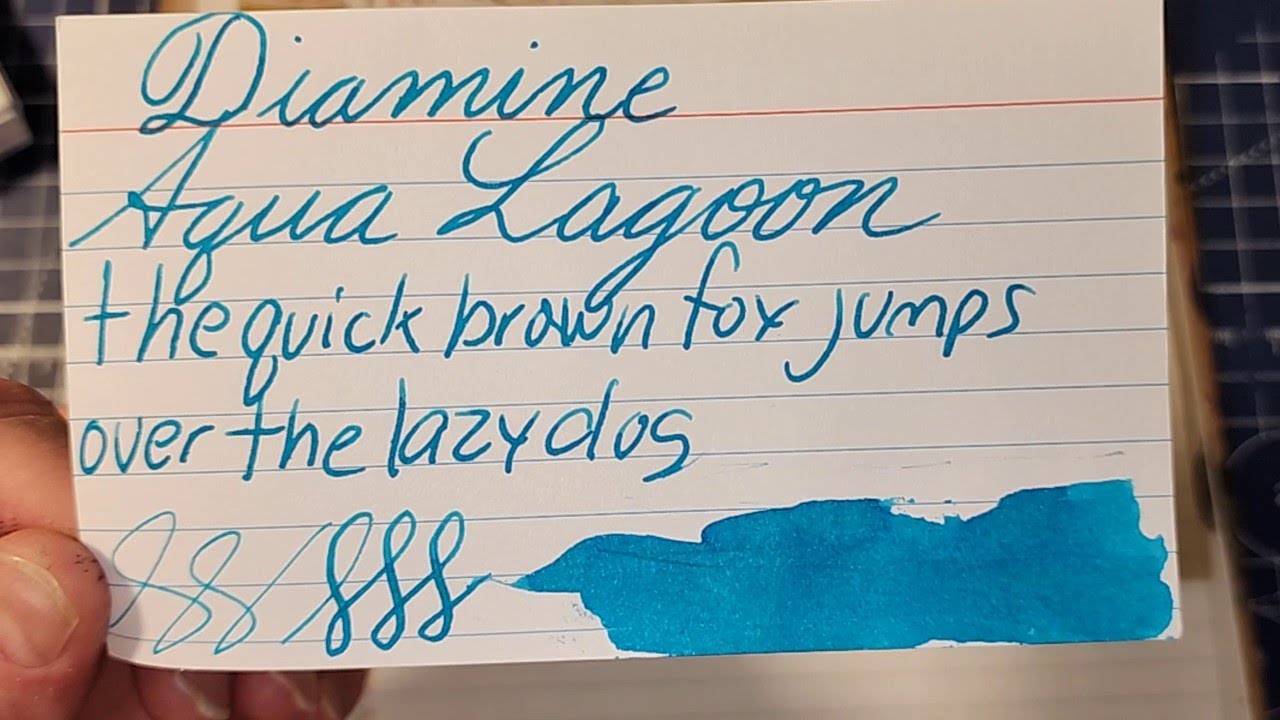 Diamine
Aqua Lagoon
the quick brown fox jumps
over the lazy dog